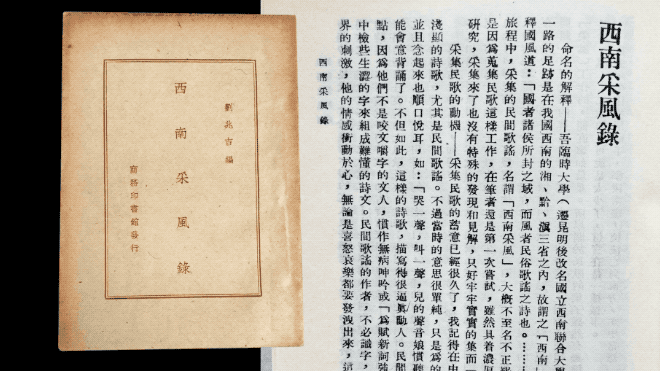 劉兆吉編
西南采風錄
商務印書館發行
西南采風錄
命名的解釋——吾臨時大學（遷昆明後改名國立西南聯合大學
一路的足跡是在我國西南的湘、黔、滇三省之內，故謂之「西南
釋國風道：「國者諸侯所封之域，而風者民俗歌謠之詩也。……
旅程中，采集的民間歌謠，名謂「西南采風」，大概不至名不正
是因爲蒐集民歌這樣工作，在筆者還是第一次嘗試，雖然具着濃
研究，采集來了也沒有特殊的發現和見解，只好牢牢實實的集而
采集民歌的動機——采集民歌的蓄意已經很久了，我記得在中
淺顯的詩歌，尤其是民間歌謠。不過當時的意思很單純，只是爲的
並且念起來也順口悅耳，如：「哭一聲，叫一聲，兒的聲音娘慣聽
能會意背誦了。不但如此，這樣的詩歌，描寫得很逼眞動人。民間
點，因爲他們不是咬文嚼字的文人，慣作無病呻吟或「爲賦新詞強
中檢些生澀的字來組成難懂的詩文。民間歌謠的作者，不必識字，
界的刺激，他的情感衝動於心，無論是喜怒哀樂都要發洩出來，這
西南采風錄